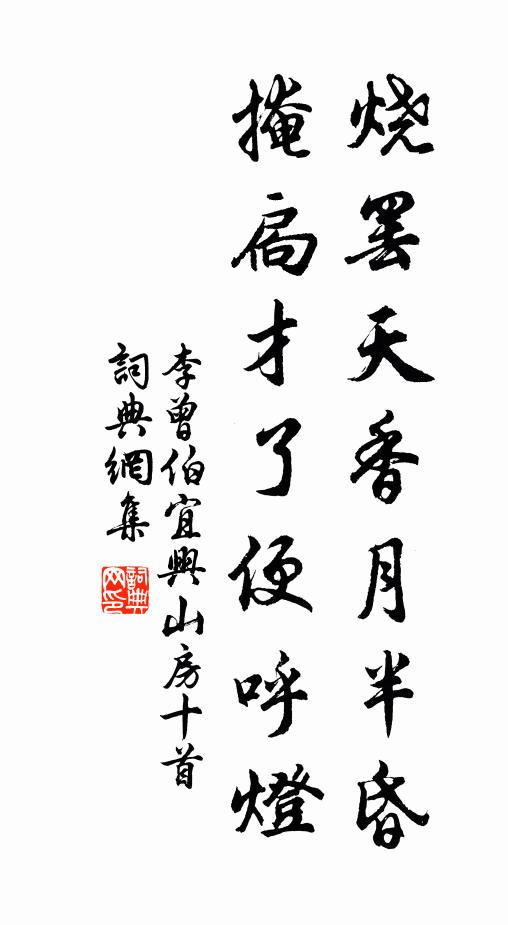 烧罢天香月半昏
掩扃才了便呼燈
李曾伯宜興山房十首
詞典網集
詞典網印